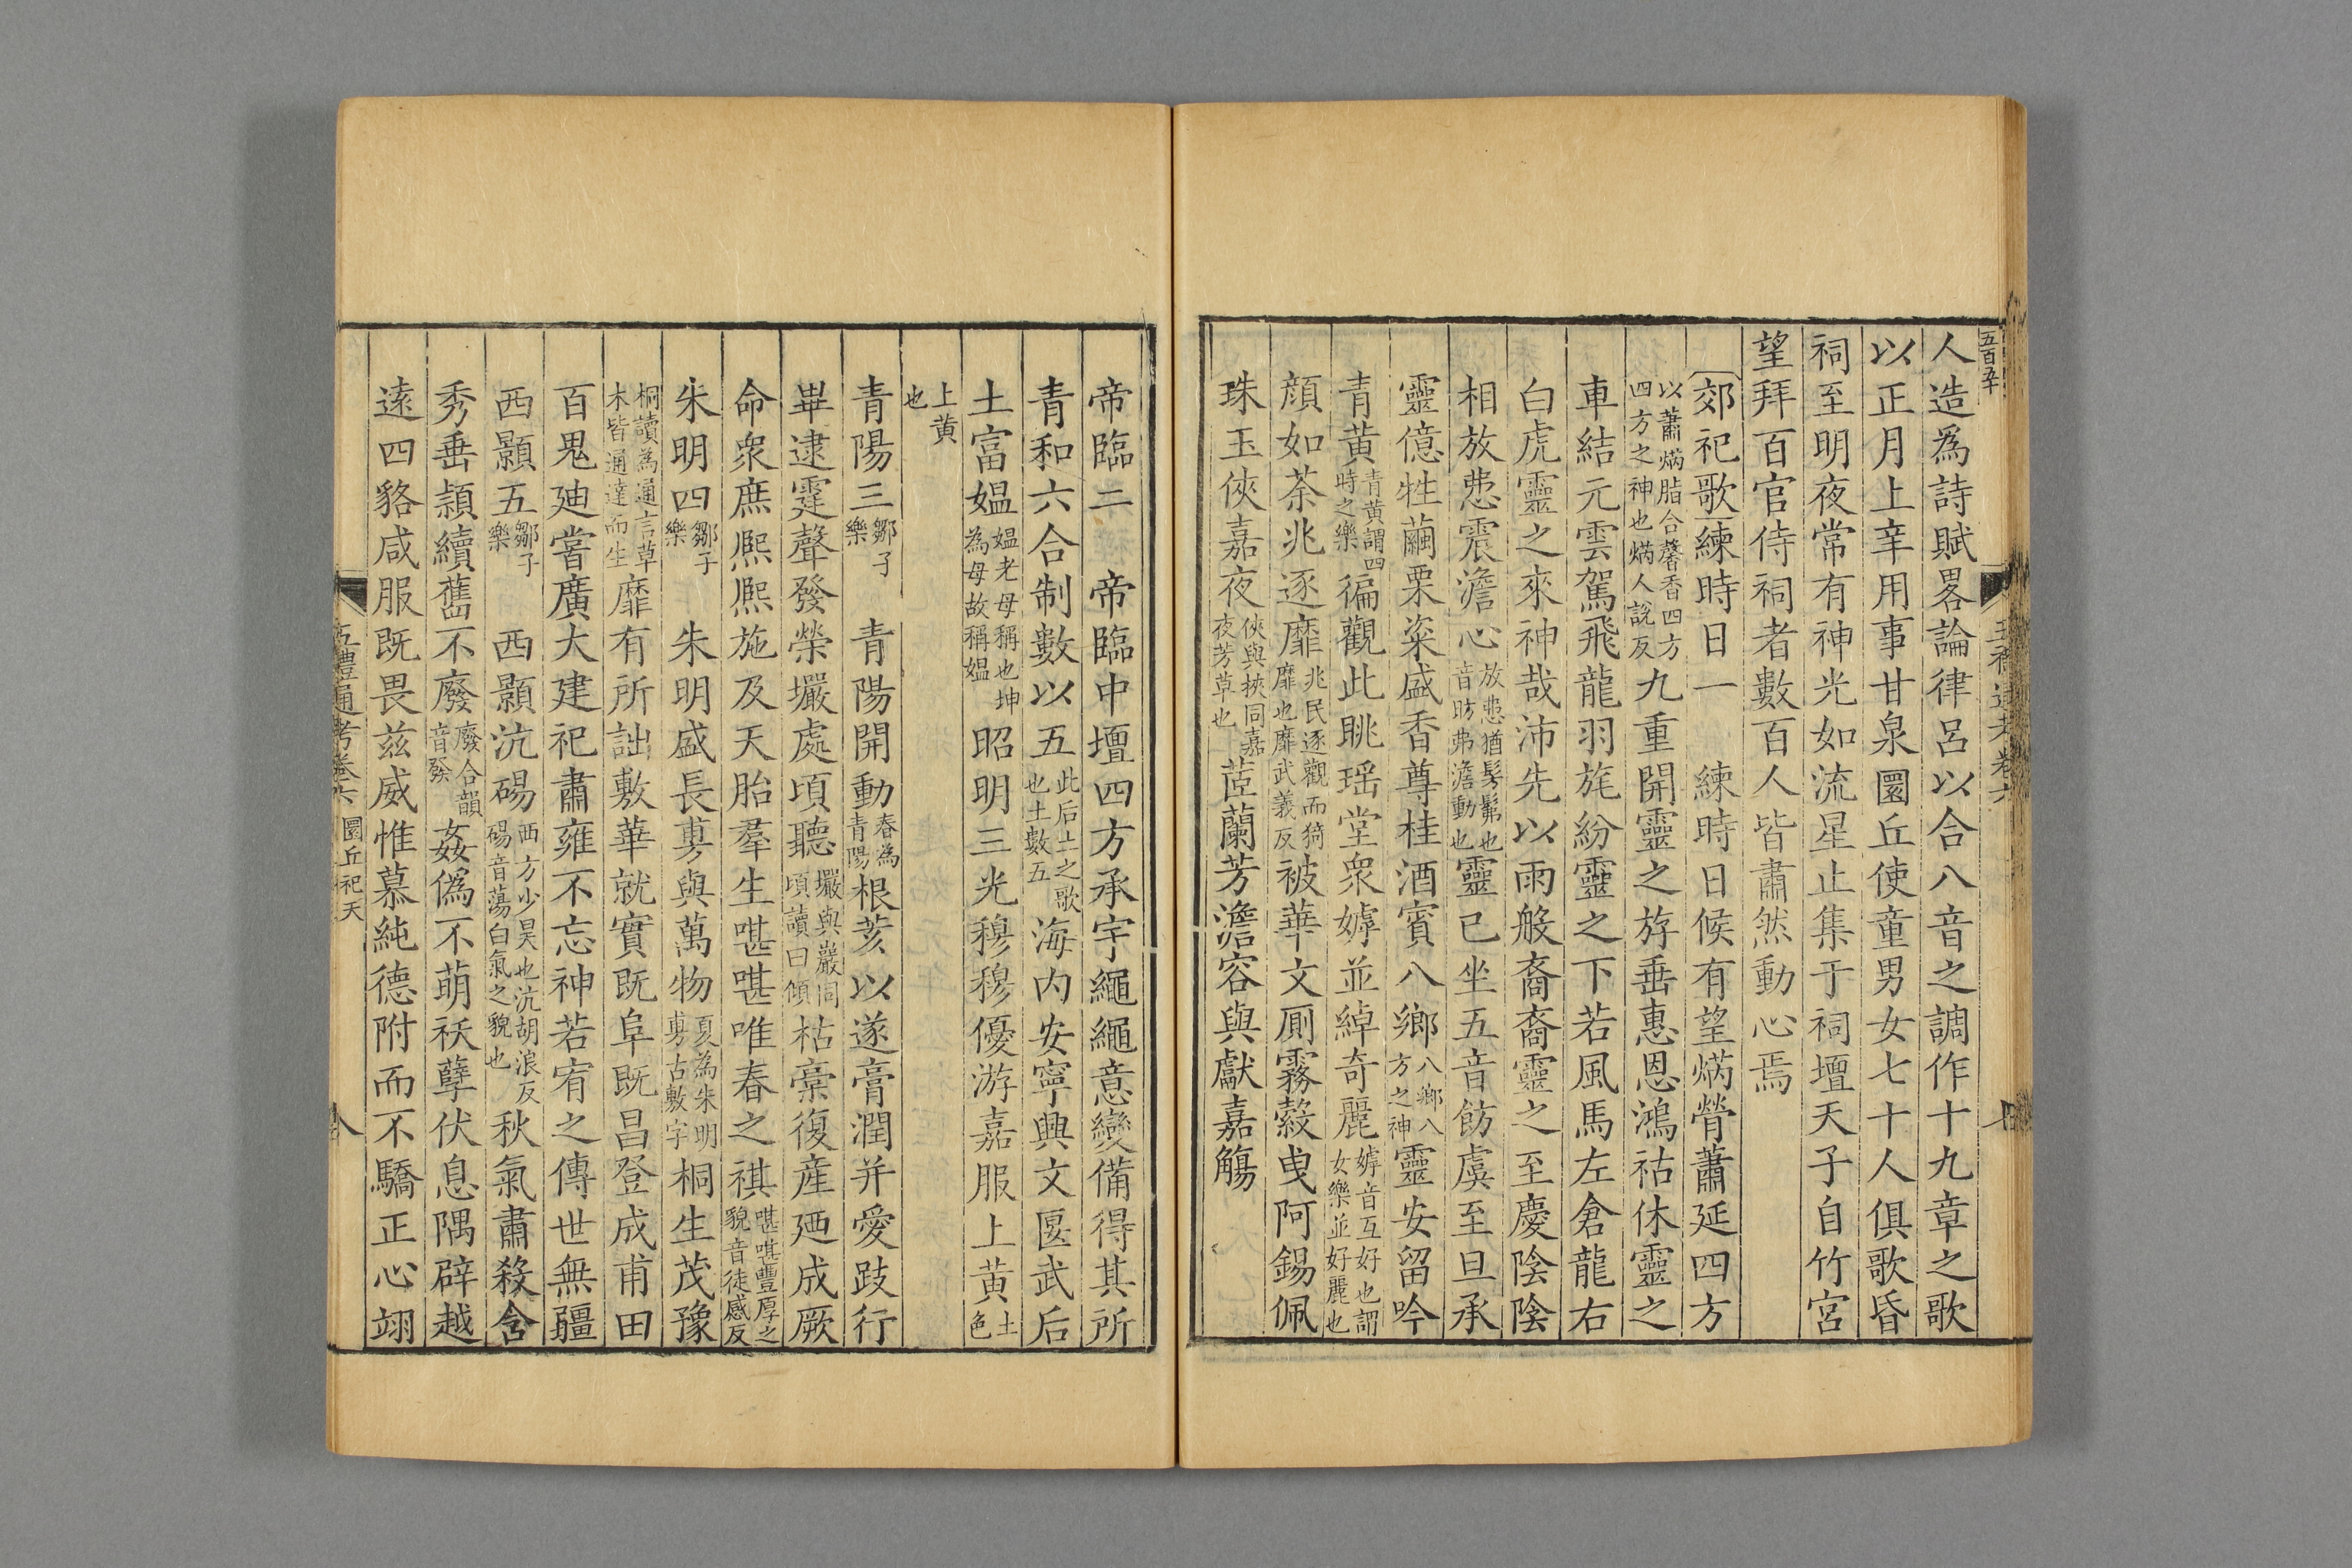 五百五十
人造爲詩賦畧論律呂以合八音之調作十九章之歌
以正月上辛用事甘泉圜丘使童男女七十人俱歌昏
祠至明夜常有神光如流星止集于祠壇天子自竹宮
望拜百官侍祠者數百人皆肅然動心焉
郊祀歌練時日一　練時日候有望焫膋蕭延四方
以蕭焫脂合馨香四方
四方之神也焫人說反
九重開靈之斿垂惠恩鴻祜休靈之
車結元雲駕飛龍羽旄紛靈之下若風馬左倉龍右
白虎靈之來神哉沛先以雨般裔裔靈之至慶陰陰
相放怫震澹心
放怫猶髣髴也
音昉弗澹動也
靈已坐五音飭虞至旦承
靈億牲繭栗粢盛香尊桂酒賓八鄉
八鄉八
方之神
靈安留吟
青黃
青黃謂四
時之樂
徧觀此眺瑶堂衆嫭並綽奇麗
嫭音互好也謂
女樂並好麗也
顔如荼兆逐靡
兆民逐觀而猗
靡也靡武義反
被華文厠霧縠曳阿錫佩
珠玉俠嘉夜
俠與挾同嘉
夜芳草也
茝蘭芳澹容與獻嘉觴
帝臨二　帝臨中壇四方承宇繩繩意變備得其所
青和六合制數以五
此后土之歌
也土數五
海内安寧興文匽武后
土富媪
媪老母稱也坤
為母故稱媪
昭明三光穆穆優游嘉服上黃
土
色
上黃
也
青陽三
鄒子
樂
青陽開動
春為
青陽
根荄以遂膏潤并愛跂行
畢逮霆聲發榮壧處頃聽
壧與巖同
頃讀曰傾
枯槀復産廼成厥
命衆庶熙熙施及夭胎羣生嘅嘅唯春之祺
嘅嘅豐厚之
貌音徒感反
朱明四
鄒子
樂
朱明盛長旉與萬物
夏為朱明
旉古敷字
桐生茂豫
桐讀為通言草
木皆通達而生
靡有所詘敷華就實既阜既昌登成甫田
百鬼廸嘗廣大建祀肅雍不忘神若宥之傳世無疆
西顥五
鄒子
樂
西顥沆碭
西方少昊也沆胡浪反
碭音蕩白氣之貌也
秋氣肅殺含
秀垂穎續舊不廢
廢合韻
音發
姦僞不萌祅孽伏息隅辟越
遠四貉咸服既畏兹威惟慕純德附而不驕正心翊
五禮通考卷六　圜丘祀天
八